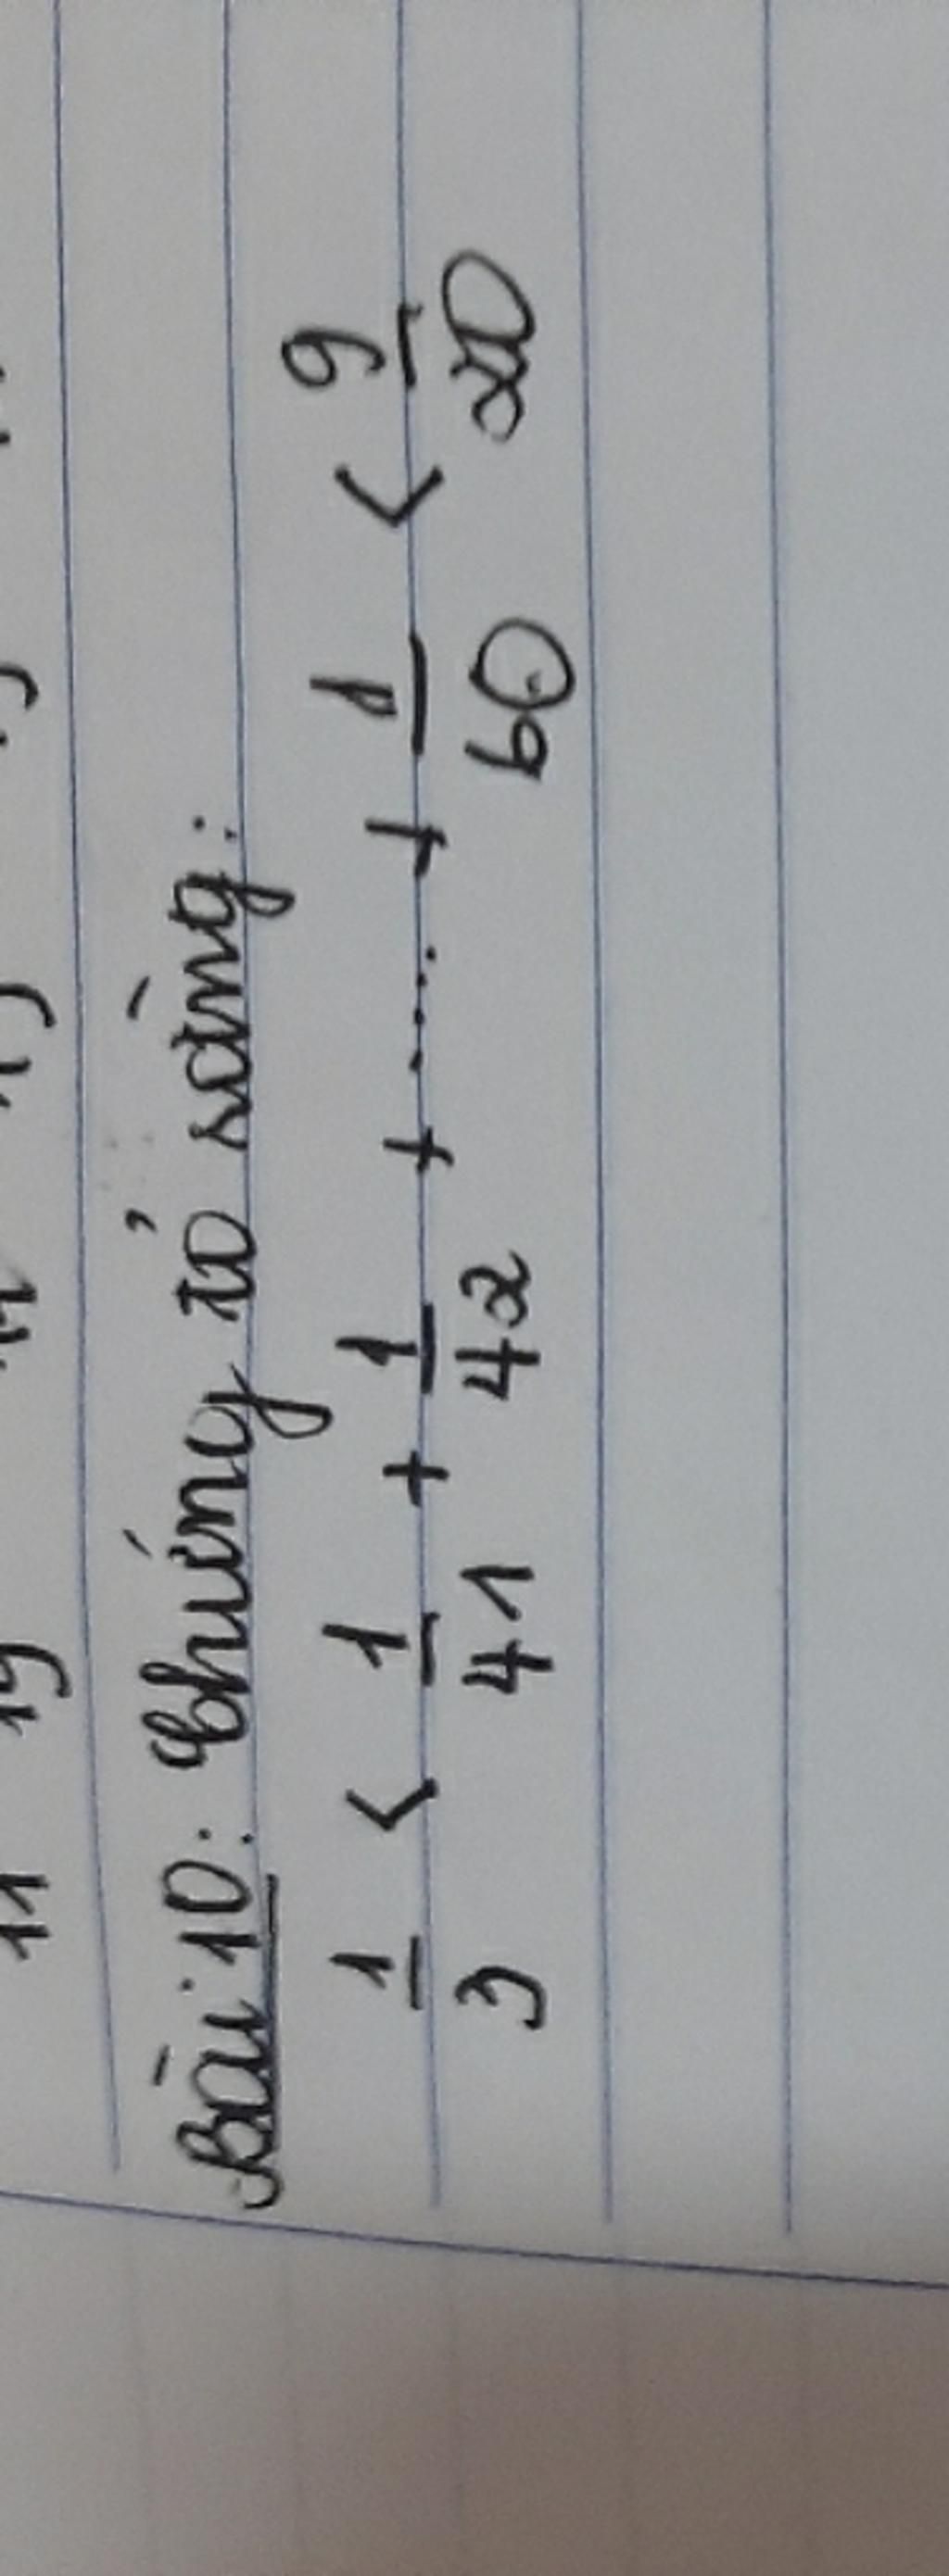 Bài 10: Chứng tỏ rằng:
1/3 < 1/41 + 1/42 + ...... + 1/60 < 9/20